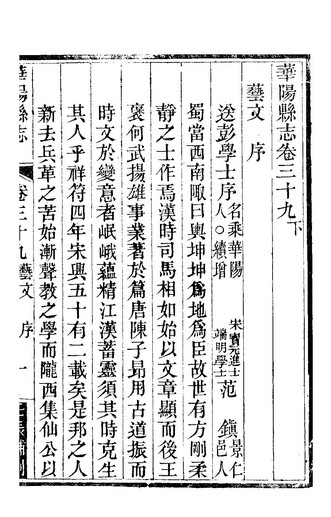 華陽縣志卷三十九下
藝文 序
送彭學士序名乘華陽人○續增 宋寶元進士端明學士范 鎮景仁邑人
蜀當西南陬曰輿坤坤爲地爲臣故世有方剛柔
靜之士作焉漢時司馬相如始以文章顯而後王
褒何武揚雄事業著於篇唐陳子昂用古道振而
時文於變意者岷峨蘊精江漢蓄靈須其時克生
其人乎祥符四年宋興五十有二載矣是邦之人
新去兵革之苦始漸聲教之學而隴西集仙公以
華陽縣志
卷三十九藝文 序 一